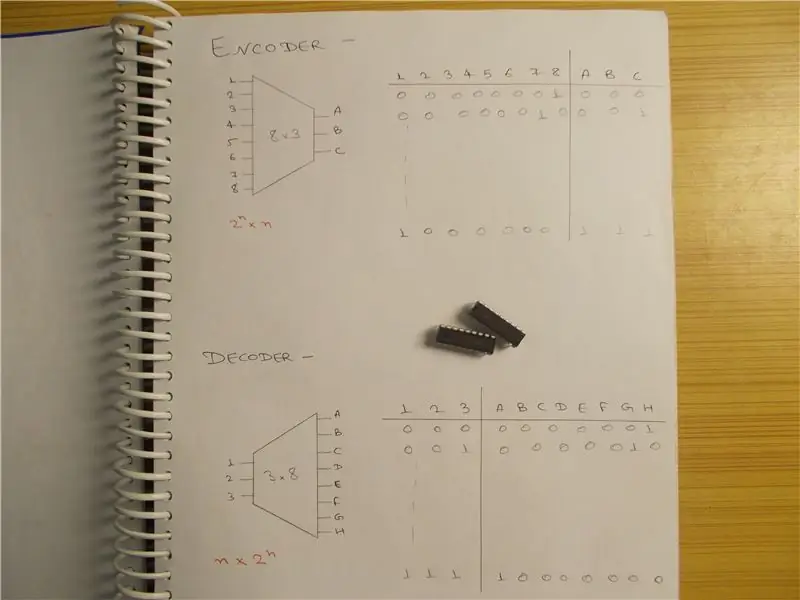 ENCODER -
1 2 3 4 5 6 7 8 A B C
0 0 0 0 0 0 0 1 0 0 0
0 0 0 0 0 0 1 0 0 0 1
1 0 0 0 0 0 0 1 1 1
1
2
3
4
5
6
7
8
8x3
A
B
C
2ⁿ x n
DECODER -
1 2 3 A B C D E F G H
0 0 0 0 0 0 0 0 0 0 1
0 0 1 0 0 0 0 0 0 1 0
1 1 1 1 0 0 0 0 0 0 0
1
2
3
3x8
A
B
C
D
E
F
G
H
n x 2ⁿ